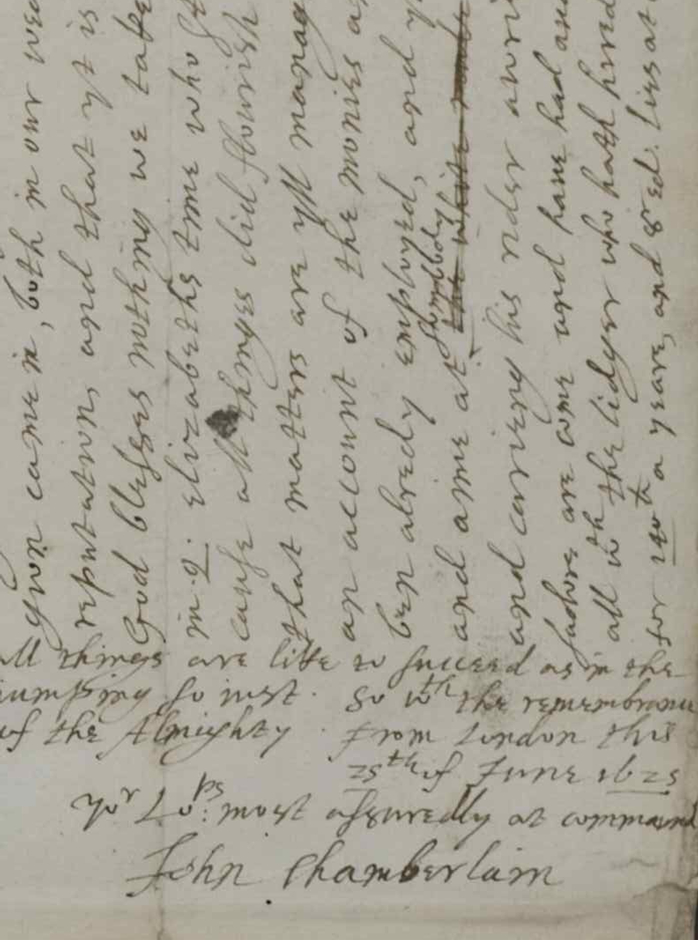 came in, both in our
reputation, and that yt is
God blesses nothing we take
in Q. Elizabeths time who
cause all things did flourish
that matters are yll manag
an account of the monies a
ben alredy employed, and
and aime at somebody
and carieng his rider awri
are come and have had
all wth the lidger who hath hired
for a yeare, and
all things are like to succeed as in the
umping so just. So wth the remembrance
of the Almighty. From London this
25th of June 1625
Yor Lops: most assuredly at command
John Chamberlain